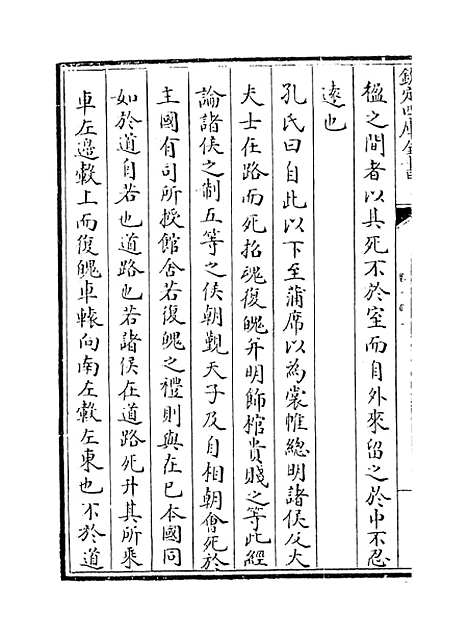 欽定四庫全書
楹之間者以其死不於室而自外來留之於中不忍
遠也
孔氏曰自此以下至蒲席以為裳帷總明諸侯及大
夫士在路而死招魂復魄并明飾棺貴賤之等此經
論諸侯之制五等之侯朝覲天子及自相朝會死於
主國有司所授館舍若復魄之禮則與在已本國同
如於道自若也道路也若諸侯在道路死升其所乘
車左邉轂上而復魄車轅向南左轂左東也不於道